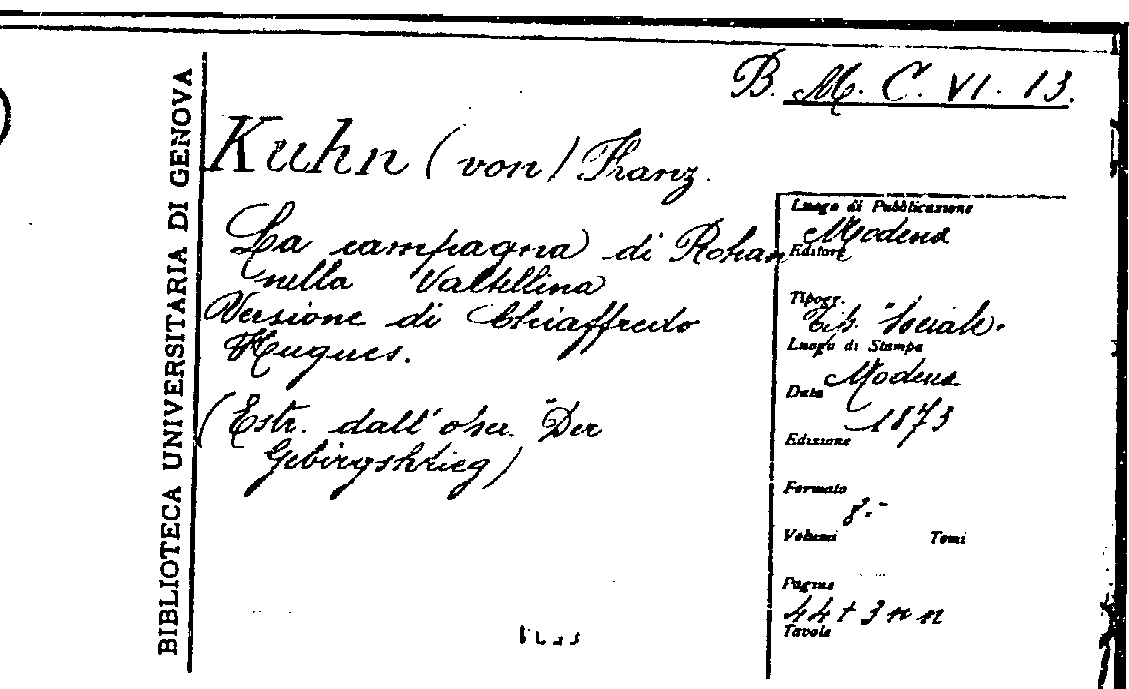 B. M. C. VI. 13.
BIBLIOTECA UNIVERSITARIA DI GENOVA
Kuhn (von) Franz.
La campagna di Rohan
nella Valtellina
Versione di Chiaffredo
Hugues.
(Estr. dall' oper. "Der
Gebirgskrieg)
Luogo di Pubblicazione
Modena
Editore
Tipogr.
Tip. Sociale.
Luogo di Stampa
Modena
Data
1873
Edizione
Formato
8.-
Volumi Tomi
Pagine
44 + 3 n n
Tavole